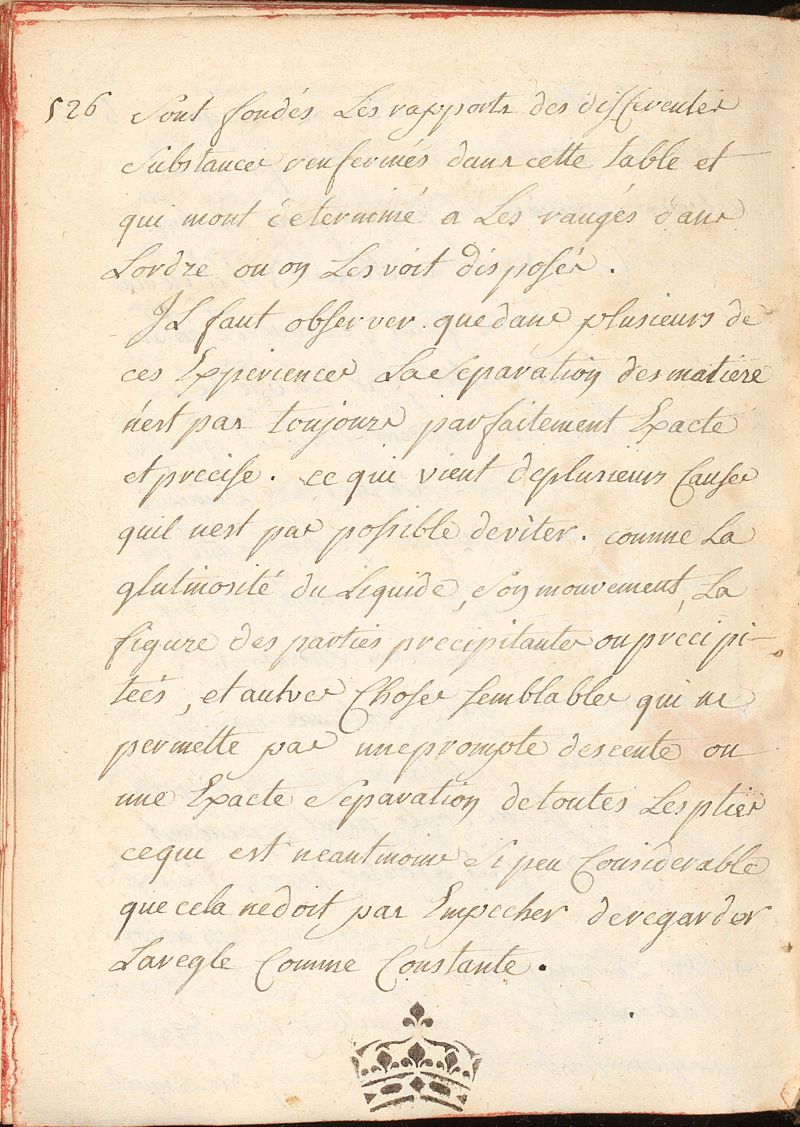 526 Sont fondés Les rapports des differentes
Substances renfermés dans cette table et
qui mont determiné a Les rangés dans
Lordre ou on Les voit disposés.
IL faut observer. que dans plusieurs de
ces Experiences La Separation des matiere
n'est pas toujours parfaitement Exacte
et precise. ce qui vient de plusieurs Causes
quil nest pas possible deviter. comme La
glutinosité du Liquide, Son mouvement, La
figure des parties precipitantes ou precipi-
teés, et autres Choses semblables qui ne
permette pas une prompte descente ou
une Exacte Separation de toutes Les pties
ce qui est neantmoins Si peu Considerable
que cela ne doit pas Empecher de regarder
La regle Comme Constante.